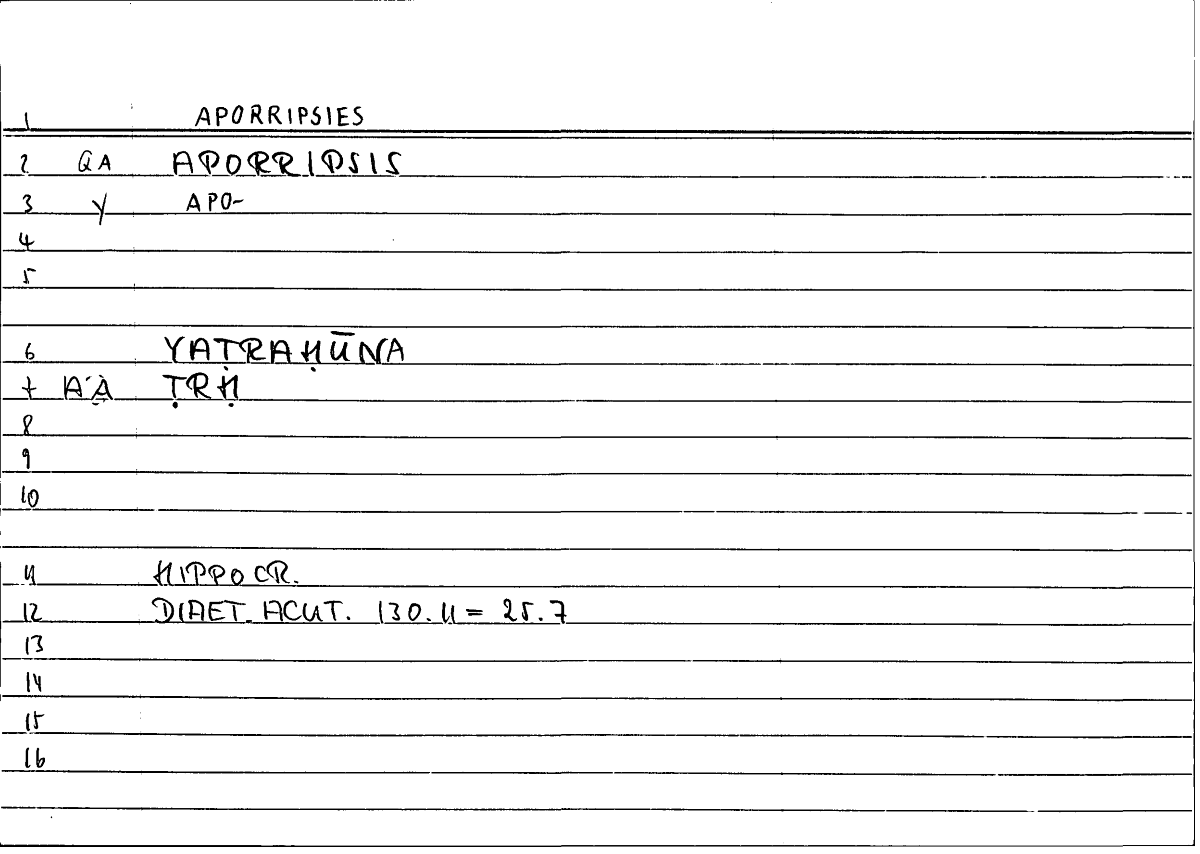 1 APORRIPSIES
2 QA APORRIPSIS
3 Y APO-
4
5
6 YAṬRAḤŪNA
7 A'A̱ ṬRḤ
8
9
10
11 HIPPOCR.
12 DIAET. ACUT. 130.11 = 25.7
13
14
15
16